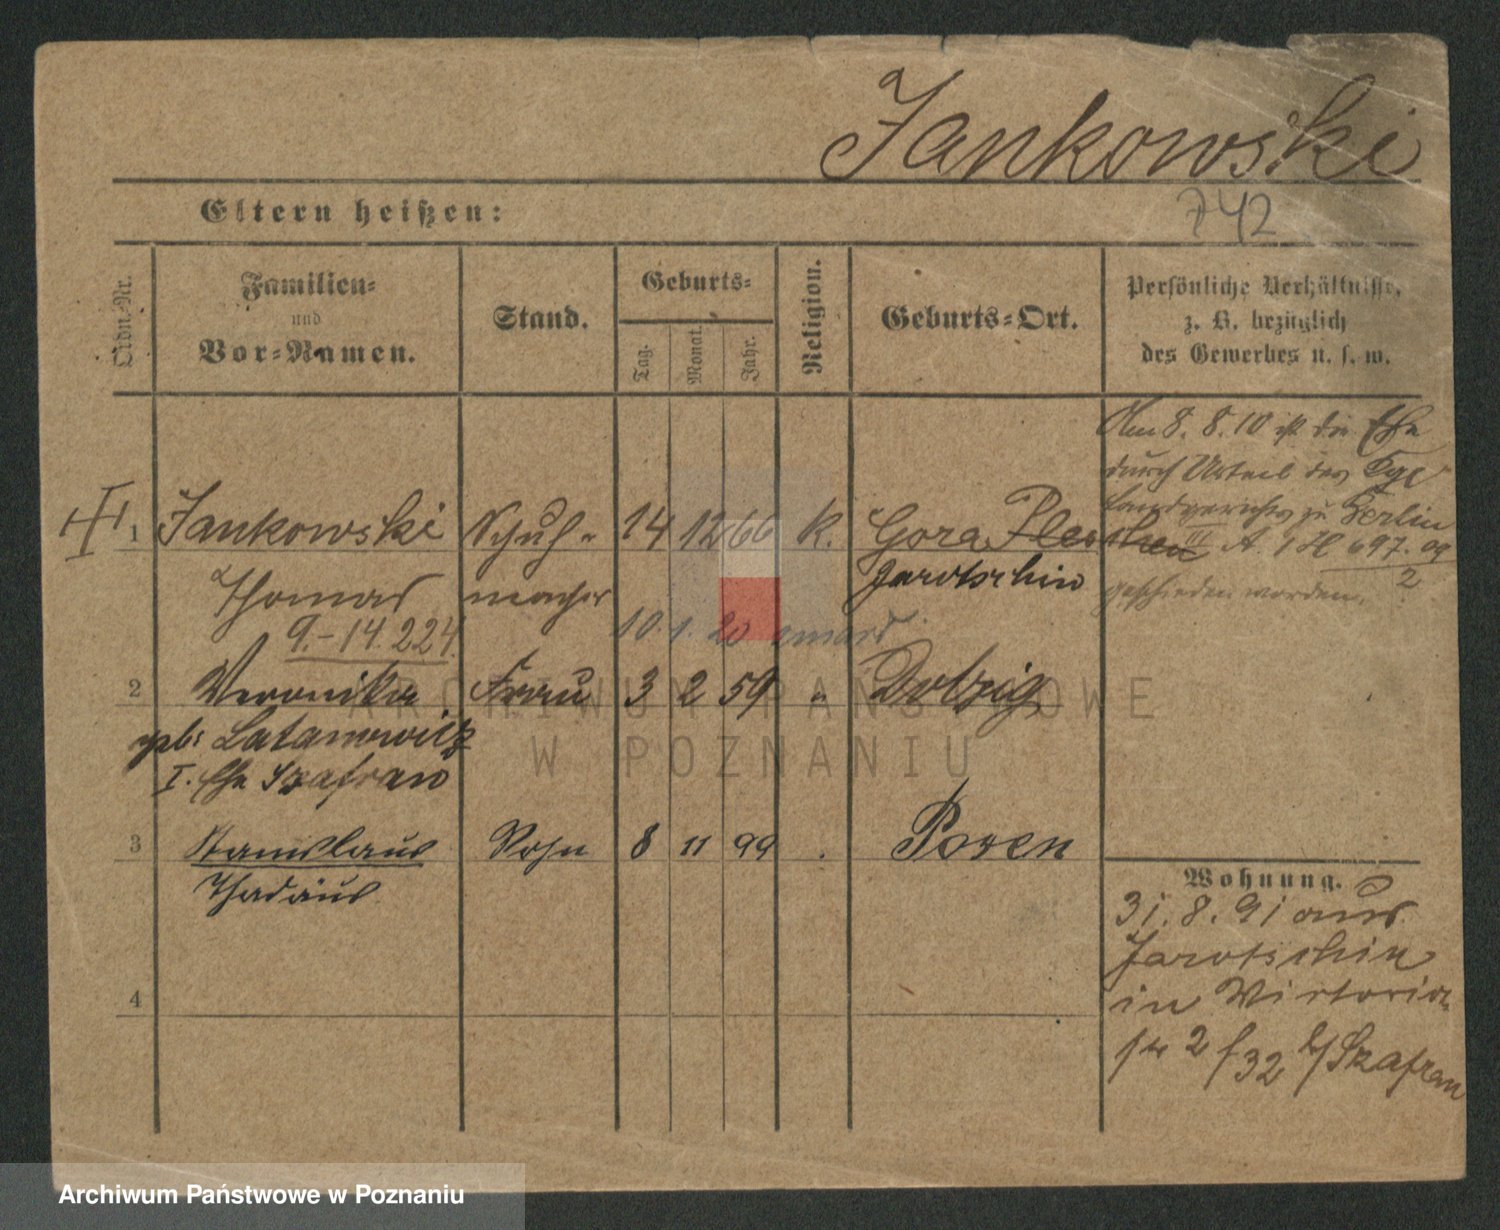 Jankowski
742
Eltern heißen:
Ordn.-Nr.
Familien- und Vor-Namen.
Stand.
Geburts-
Tag.
Monat.
Jahr.
Religion.
Geburts-Ort.
Persönliche Verhältnisse,
z. B. bezüglich
des Gewerbes u. s. w.
Am 8. 8. 10 ist die Ehe
durch Urteil des Kgl
Landgerichts zu Berlin
III A. 1 H 697. 09
2
geschieden worden.
1 Jankowski Schuh- 14 12 66 K. Gora Pleschen
Thomas macher Jarotschin
9.-14.224.
10. 1. 20
2 Veronika Frau 3 2 59 " Dolzig
geb: Latanowicz
I. Ehe Szafran
3 Stanislaus Sohn 8 11 99 . Posen
Thadäus
4
Wohnung.
31. 8. 91 aus
Jarotschin
in Victoria
str 2 f 32 b/ Szafran
ARCHIWUM PAŃSTWOWE
W POZNANIU
Archiwum Państwowe w Poznaniu